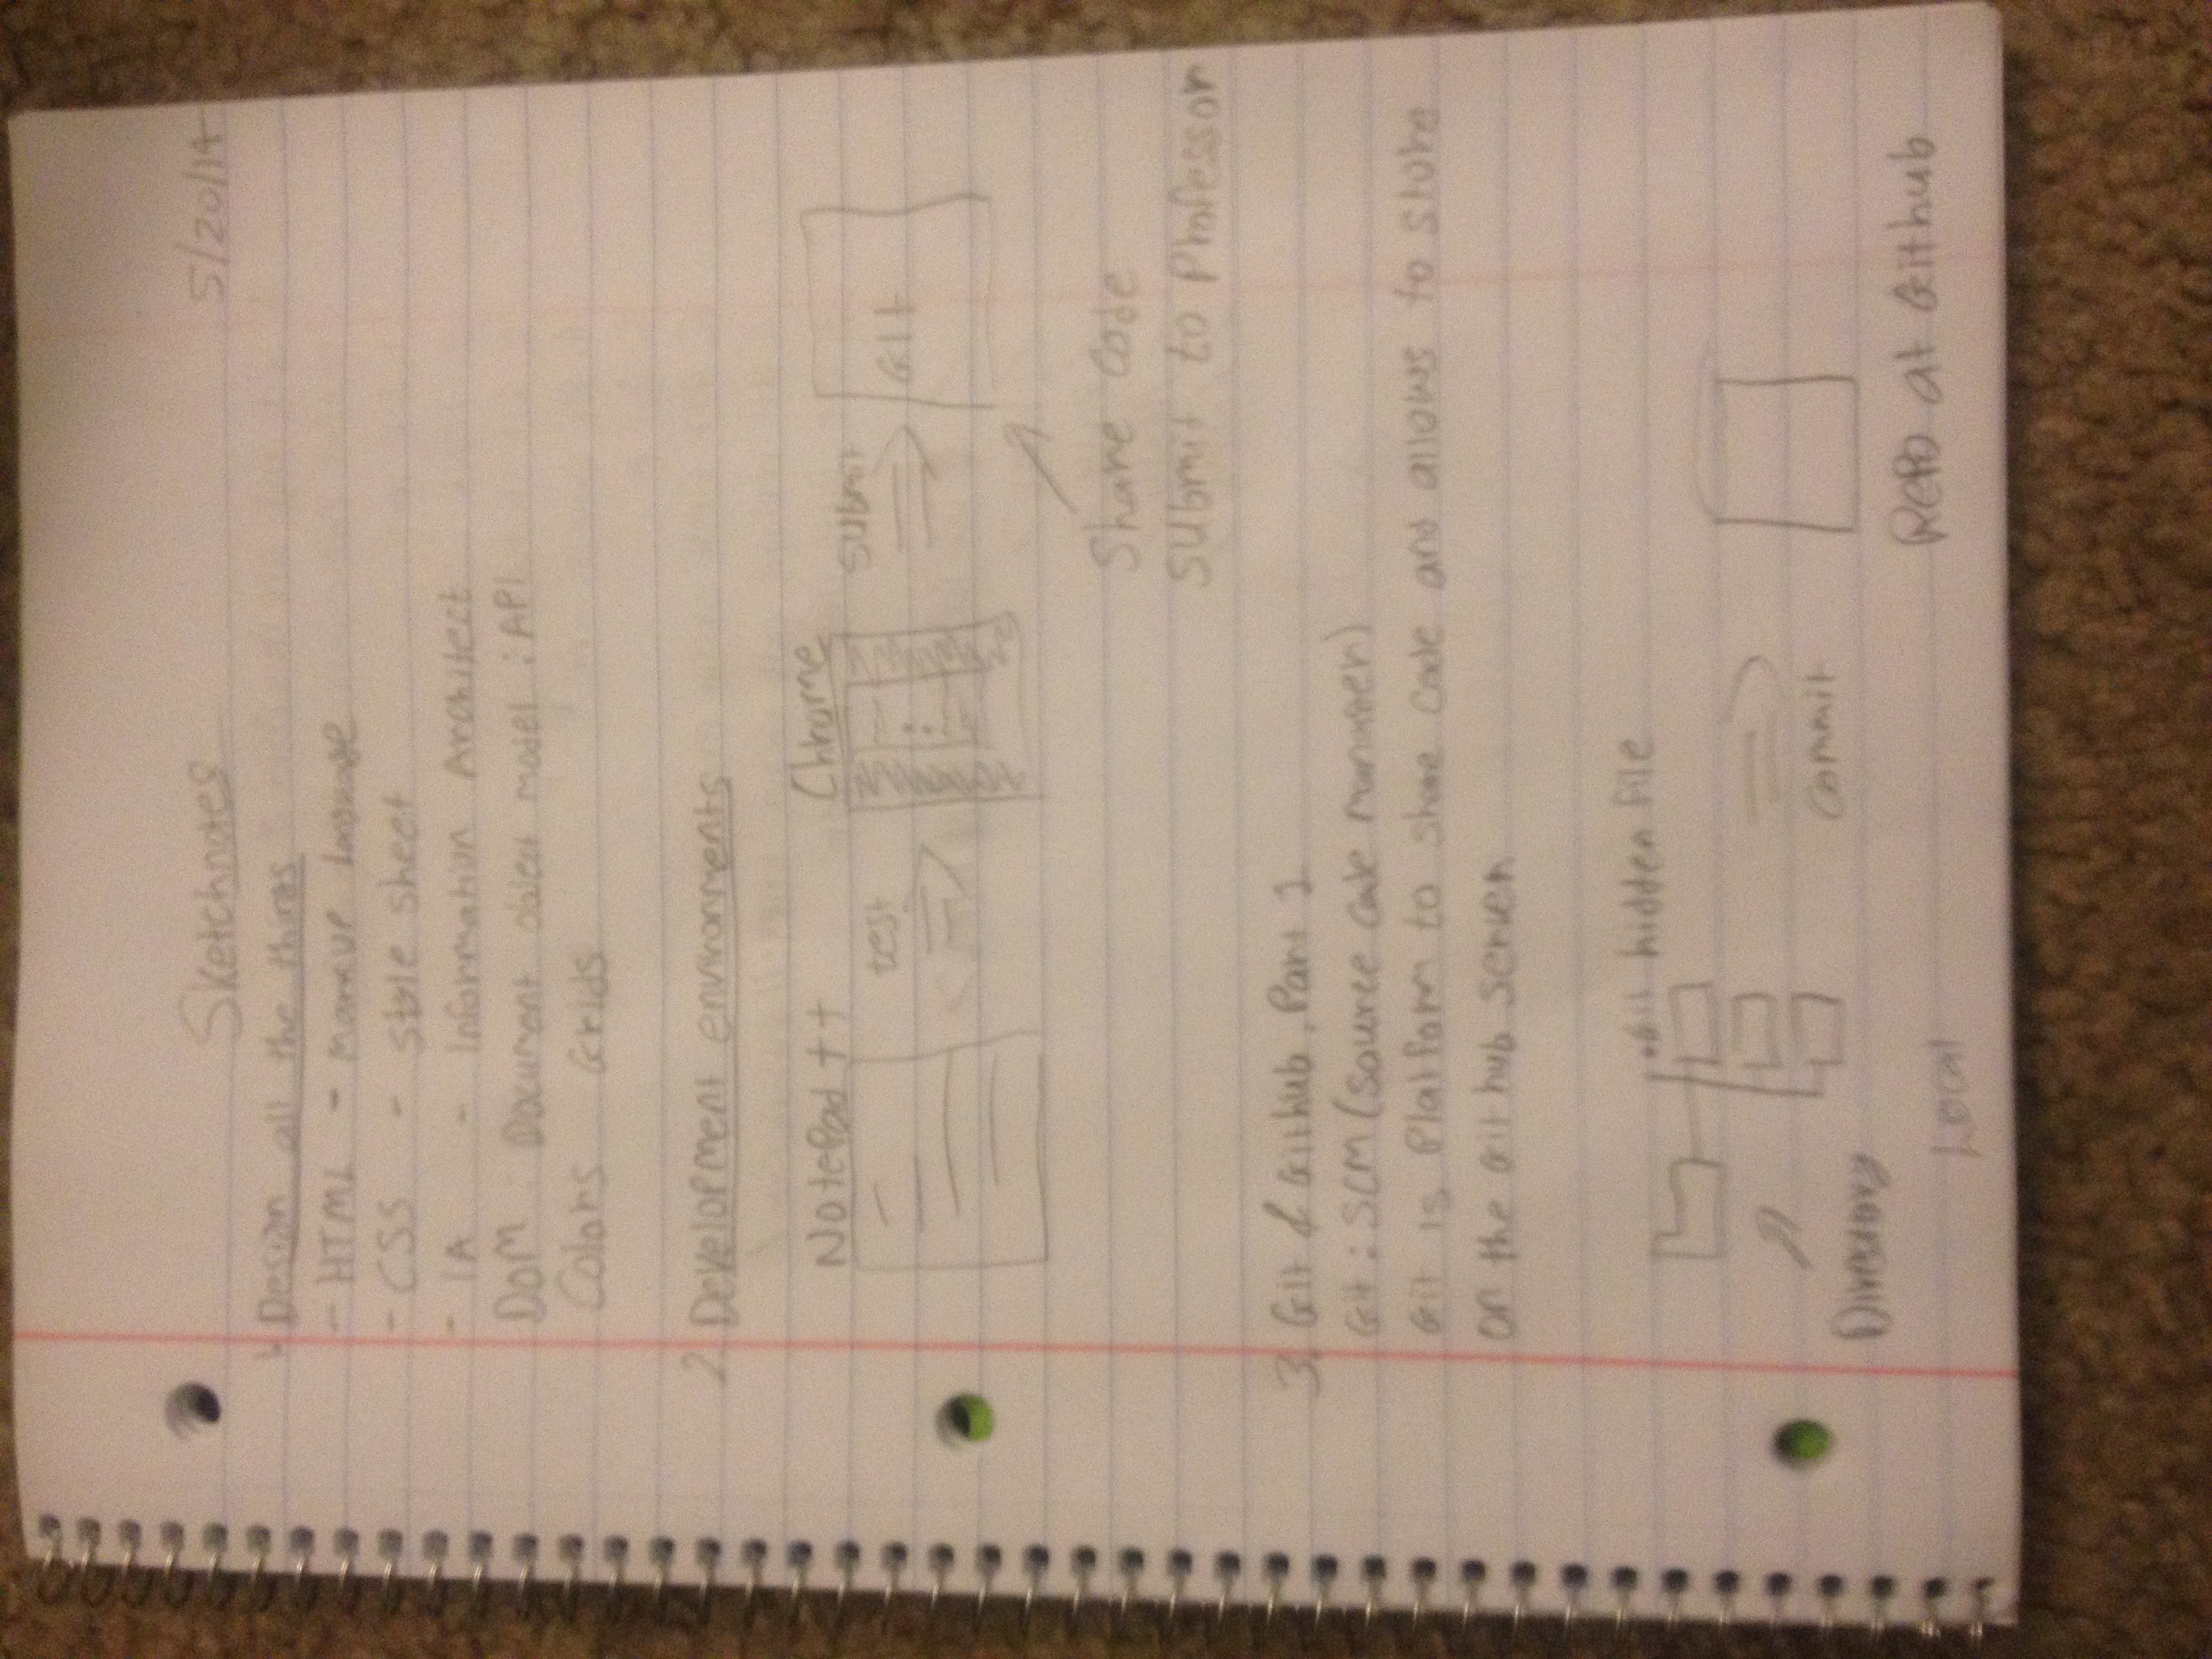 Sketchnotes 5/20/14
1. Design all the things
- HTML - markup language
- CSS - style sheet
- IA - Information Architect
DOM : Document object model : API
Colors Grids
2. Development environments
NotePad ++
Chrome
test
submit
Git
Share Code
Submit to Professor
3. Git & Github, Part 1
Git : SCM (Source Code manager)
Git is Platform to share code and allows to store
on the Github server
.git hidden file
commit
Directory
Local
Repo at Github